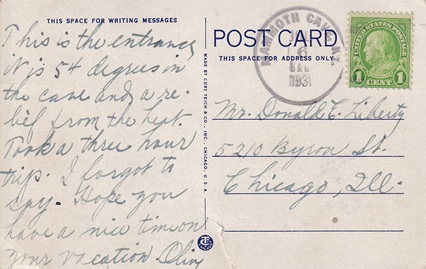 THIS SPACE FOR WRITING MESSAGES
This is the entrance,
It is 54 degrees in
the cave and a re-
lief from the heat.
Took a three hour
trip. I forgot to
say. Hope you
have a nice time on
your vacation. Olive
POST CARD
THIS SPACE FOR ADDRESS ONLY.
MAMMOTH CAVE, KY.
6
1931
UNITED STATES POSTAGE
1 1
CENT
MADE BY CURT TEICH & CO., INC., CHICAGO, U.S.A.
Mr. Donald E. Liberty
5210 Byron St.
Chicago, Ill.